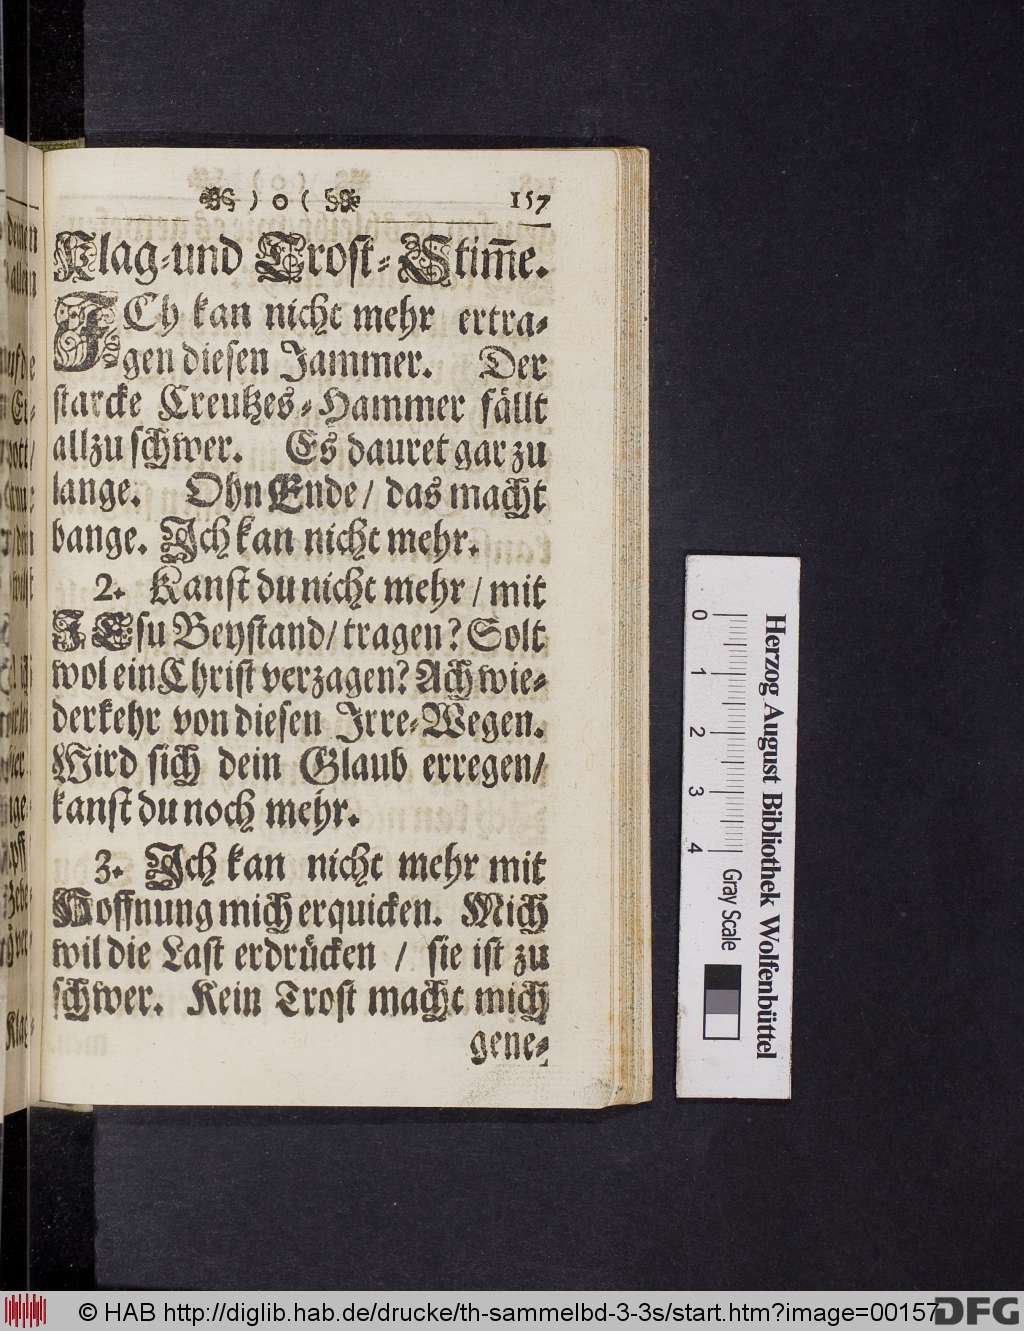 ) o ( 157
Klag-und Trost-Stim̃e.
JCh kan nicht mehr ertra-
gen diesen Jammer. Der
starcke Creutzes-Hammer fällt
allzu schwer. Es dauret gar zu
lange. Ohn Ende / das macht
bange. Ich kan nicht mehr.
2. Kanst du nicht mehr / mit
JEsu Beystand / tragen? Solt
wol ein Christ verzagen? Ach wie-
derkehr von diesen Irre-Wegen.
Wird sich dein Glaub erregen /
kanst du noch mehr.
3. Ich kan nicht mehr mit
Hoffnung mich erquicken. Mich
wil die Last erdrücken / sie ist zu
schwer. Kein Trost macht mich
gene-
0 1 2 3 4
Gray Scale
Herzog August Bibliothek Wolfenbüttel
© HAB http://diglib.hab.de/drucke/th-sammelbd-3-3s/start.htm?image=00157
DFG